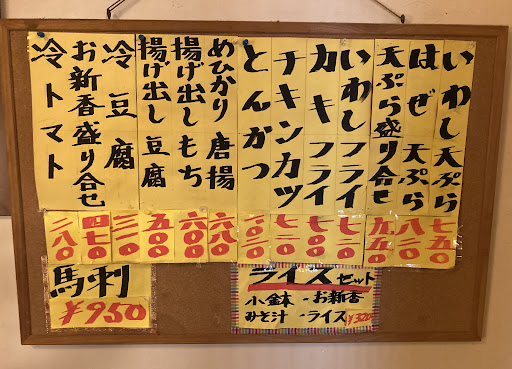 いわし天ぷら
七五〇
はぜ 天ぷら
八二〇
天ぷら盛り合せ
九五〇
いわしフライ
七二〇
カキフライ
七〇〇
チキンカツ
とんかつ
めひかり 唐揚
六八〇
揚げ出しもち
六〇〇
揚げ出し豆腐
五〇〇
冷豆腐
お新香盛り合せ
四七〇
冷トマト
二八〇
馬刺
¥950
ライスセット
小鉢・お新香
みそ汁・ライス ¥320